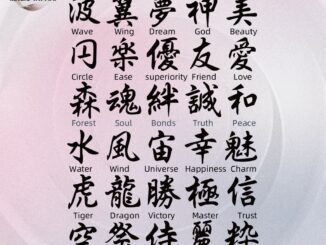 波 翼 夢 神 美
Wave Wing Dream God Beauty
円 楽 優 友 愛
Circle Ease superiority Friend Love
森 魂 絆 誠 和
Forest Soul Bonds Truth Peace
水 風 宙 幸 魅
Water Wind Universe Happiness Charm
虎 龍 勝 極 信
Tiger Dragon Victory Master Trust
空 祭 侍 麗 艶